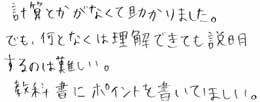 計算とかがなくて助かりました。
でも、何となくは理解できても説明
するのは難しい。
教科書にポイントを書いてほしい。